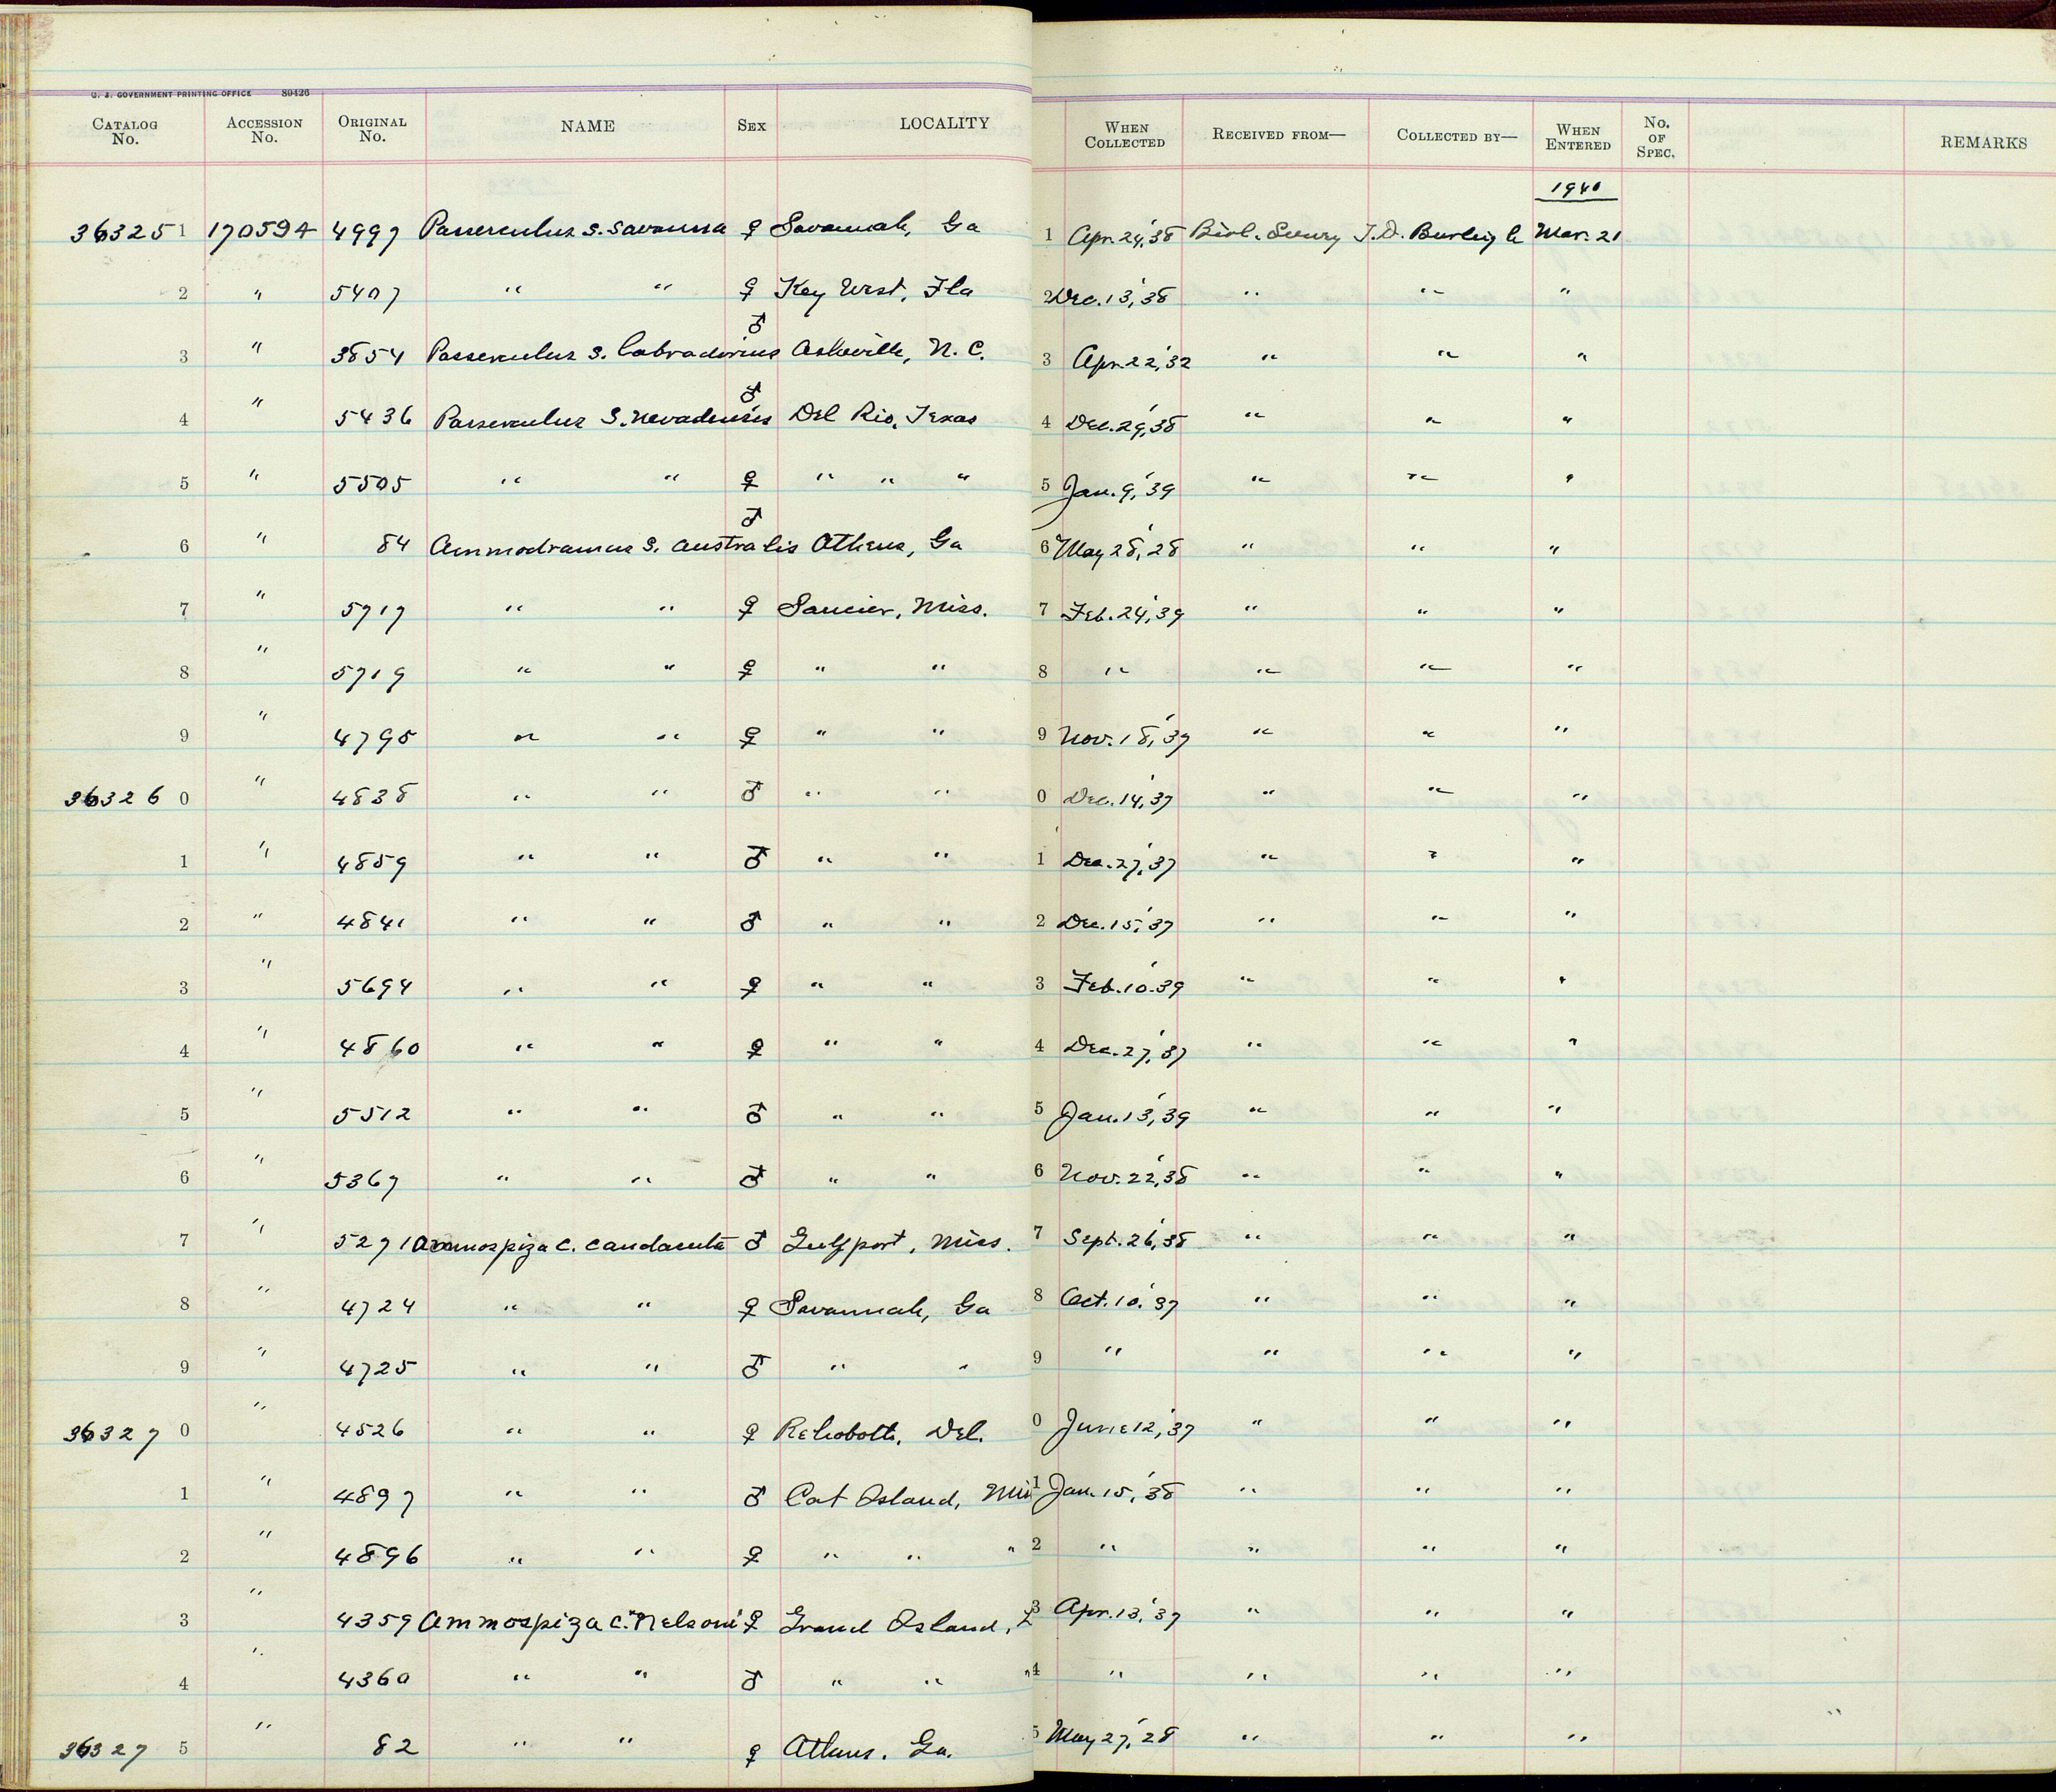 U. S. GOVERNMENT PRINTING OFFICE 89426
CATALOG No. ACCESSION No. ORIGINAL No. NAME SEX LOCALITY WHEN COLLECTED RECEIVED FROM— COLLECTED BY— WHEN ENTERED No. OF SPEC. REMARKS
1940
36325 1 170594 4997 Passerculus s. savanna ♀ Savannah, Ga 1 Apr. 24, '38 Biol. Survey T. D. Burleigh Mar. 21
2 " 5407 " " ♀ Key West, Fla 2 Dec. 13, '38 " " "
3 " 3854 Passerculus s. labradorius ♂ Asheville, N. C. 3 Apr. 22, '32 " " "
4 " 5436 Passerculus s. nevadensis ♂ Del Rio, Texas 4 Dec. 29, '38 " " "
5 " 5505 " " ♀ " " " 5 Jan. 9, '39 " " "
6 " 84 Ammodramus s. australis ♂ Athens, Ga 6 May 28, '28 " " "
7 " 5717 " " ♀ Saucier, Miss. 7 Feb. 24, '39 " " "
8 " 5719 " " ♀ " " 8 " " " "
9 " 4795 " " ♀ " " 9 Nov. 18, '37 " " "
36326 0 " 4838 " " ♂ " " 0 Dec. 14, '37 " " "
1 " 4859 " " ♂ " " 1 Dec. 27, '37 " " "
2 " 4841 " " ♂ " " 2 Dec. 15, '37 " " "
3 " 5694 " " ♀ " " 3 Feb. 10. '39 " " "
4 " 4860 " " ♀ " " 4 Dec. 27, '37 " " "
5 " 5512 " " ♂ " " 5 Jan. 13, '39 " " "
6 " 5367 " " ♂ " " 6 Nov. 22, '38 " " "
7 " 5271 Ammospiza c. caudacuta ♂ Gulfport, Miss. 7 Sept. 26, '38 " " "
8 " 4724 " " ♀ Savannah, Ga 8 Oct. 10. '37 " " "
9 " 4725 " " ♂ " " 9 " " " "
36327 0 " 4526 " " ♀ Rehoboth, Del. 0 June 12, '37 " " "
1 " 4897 " " ♂ Cat Island, Mis 1 Jan. 15, '38 " " "
2 " 4896 " " ♀ " " " 2 " " " "
3 " 4359 Ammospiza c. nelsoni ♀ Grand Island, L 3 Apr. 13, '37 " " "
4 " 4360 " " ♂ " " " 4 " " " "
36327 5 " 82 " " ♀ Athens, Ga. 5 May 27, '28 " " "